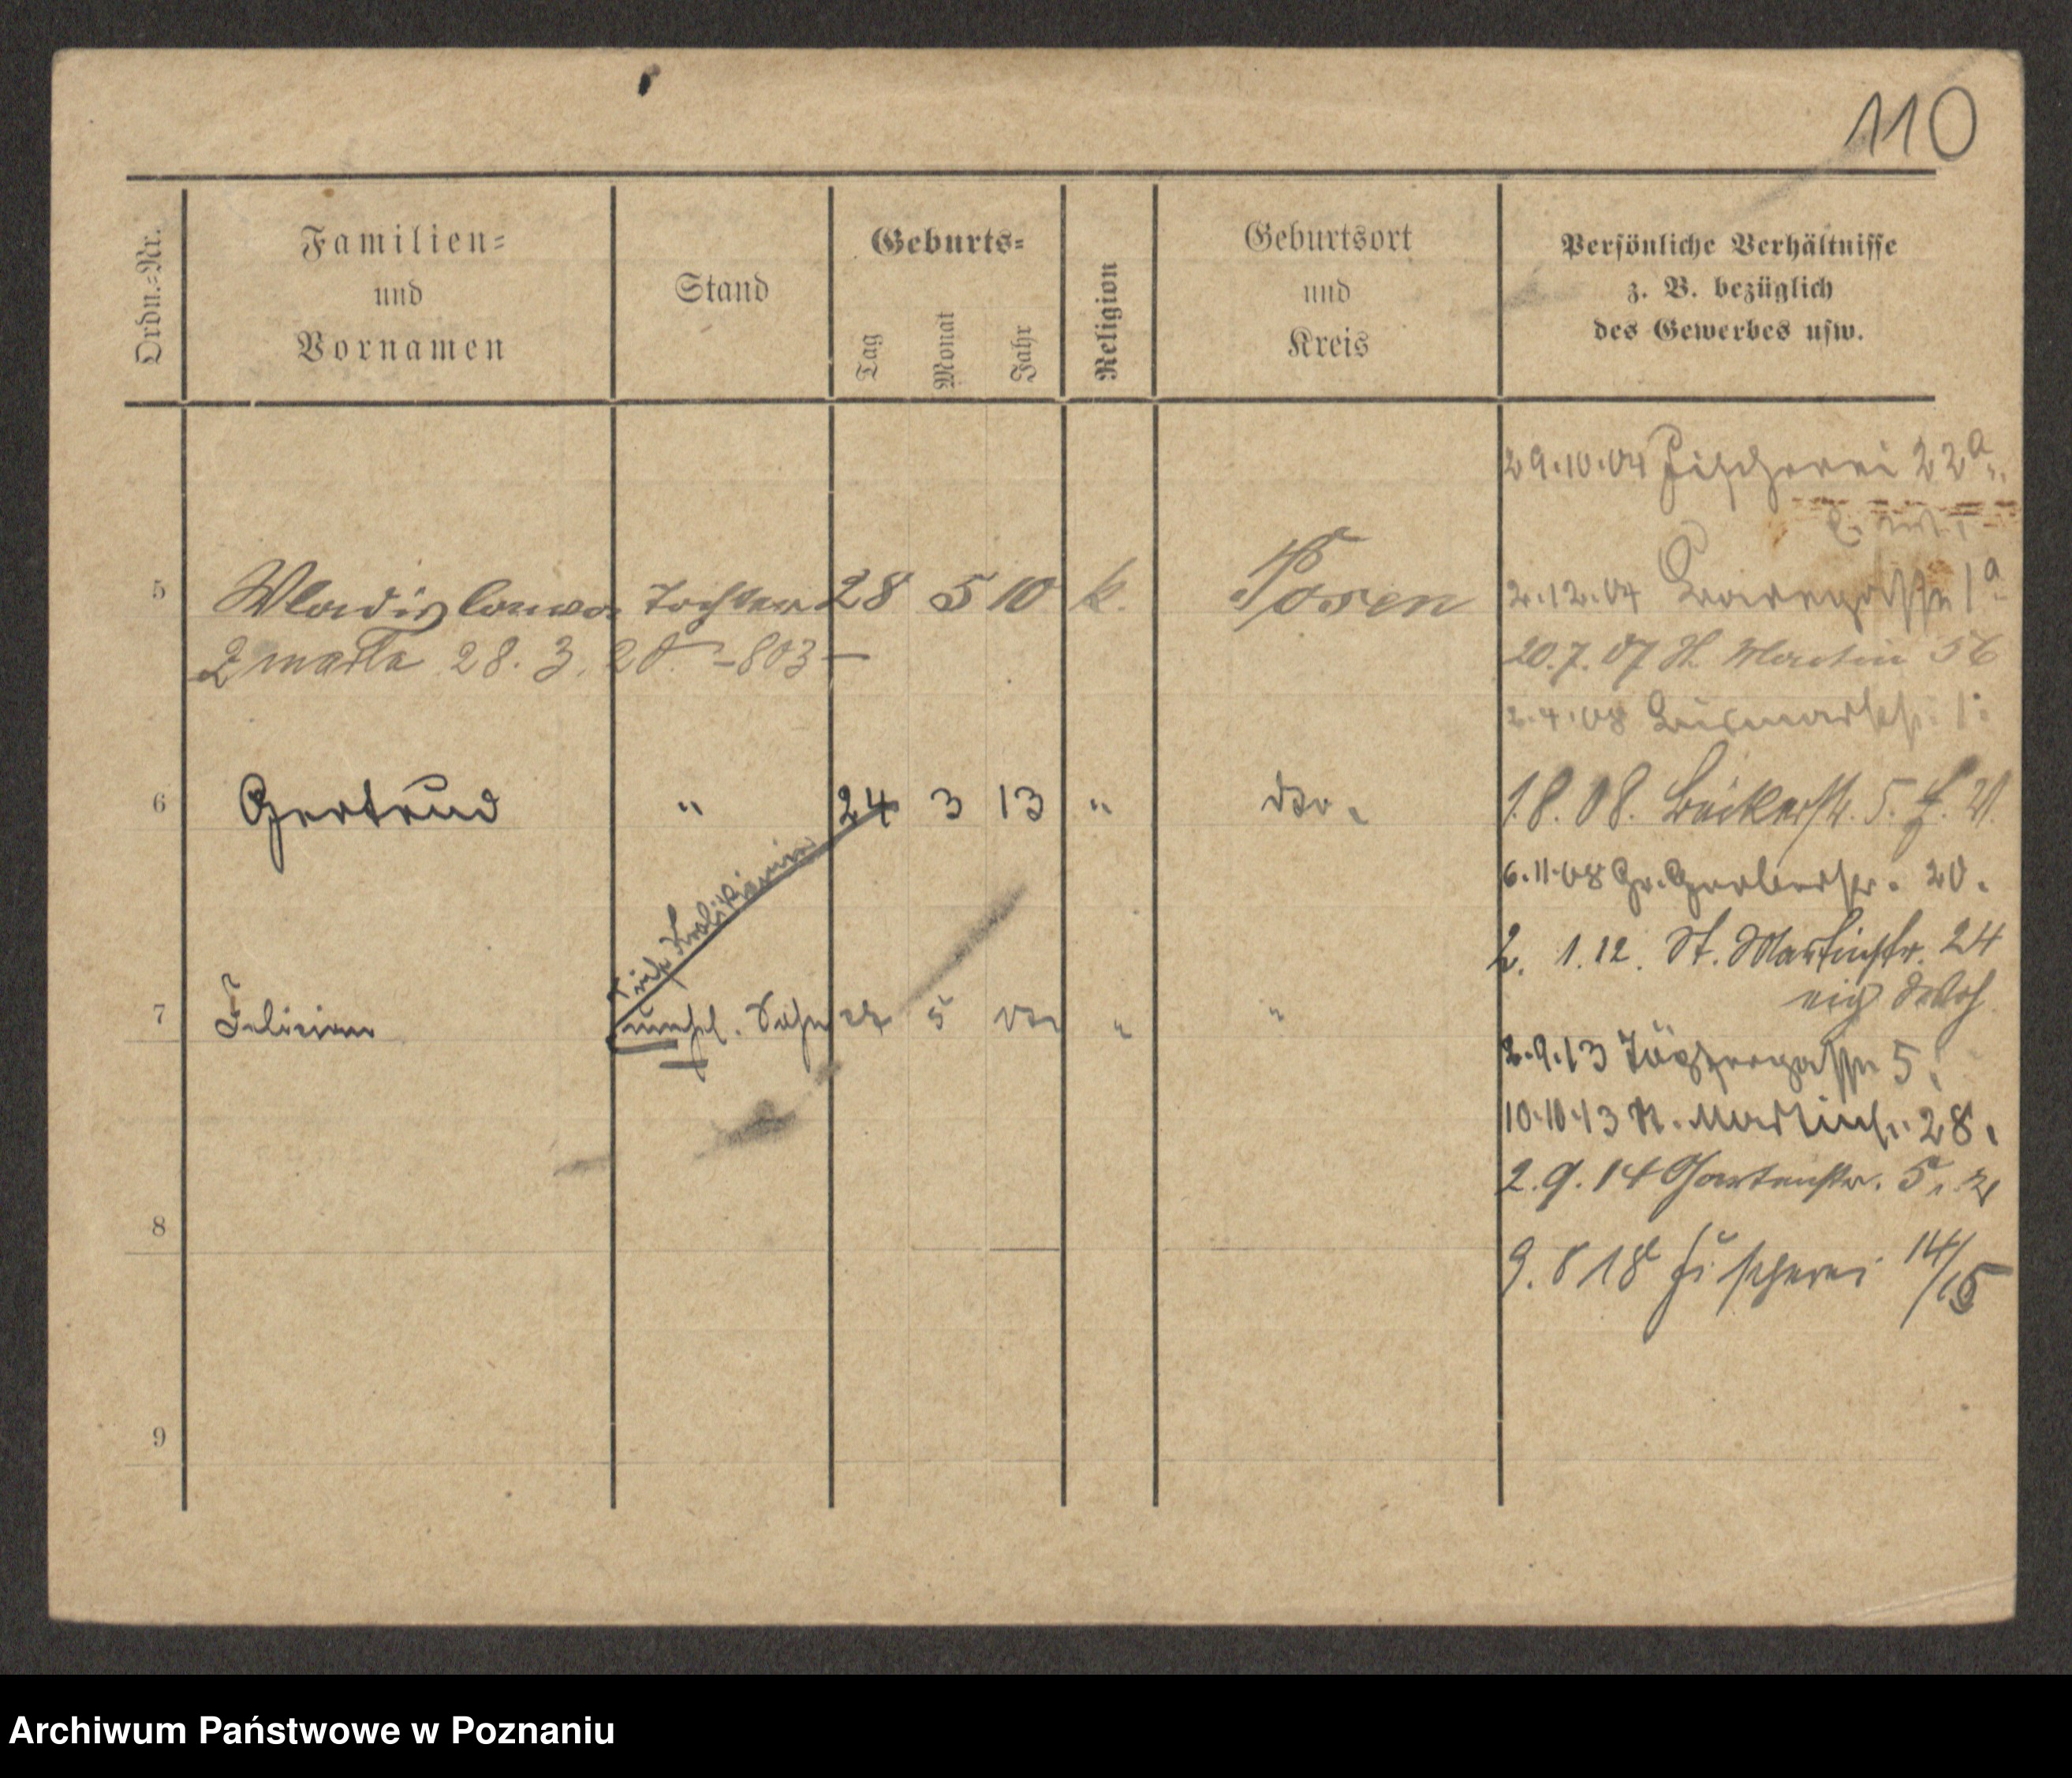 110
Ordn.=Nr.
Familien=
und
Vornamen
Stand
Geburts=
Tag
Monat
Jahr
Religion
Geburtsort
und
Kreis
Persönliche Verhältnisse
z. B. bezüglich
des Gewerbes usw.
29.10.04 Fischerei 22a
5 Wladislawa Tochter 28 5 10 k. Posen
2.12.04 1a
zmarła 28. 3. 20. -803-
20.7.07 St. Martin 56
2.4.08 Bismarckstr. 1.
6 Gertrud " 24 3 13 " do.
1.8.08. Bäckerstr. 5.
6.11.08 Gr. Gerberstr. 20.
2. 1.12. St. Martinstr. 24
eig
7 Felician unehel. Sohn 5 " "
2.9.13 5.
10.10.13 St. Martinstr. 28.
2.9.14 Gartenstr. 5.
8
9.8 18 Fischerei 14/15
9
Archiwum Państwowe w Poznaniu